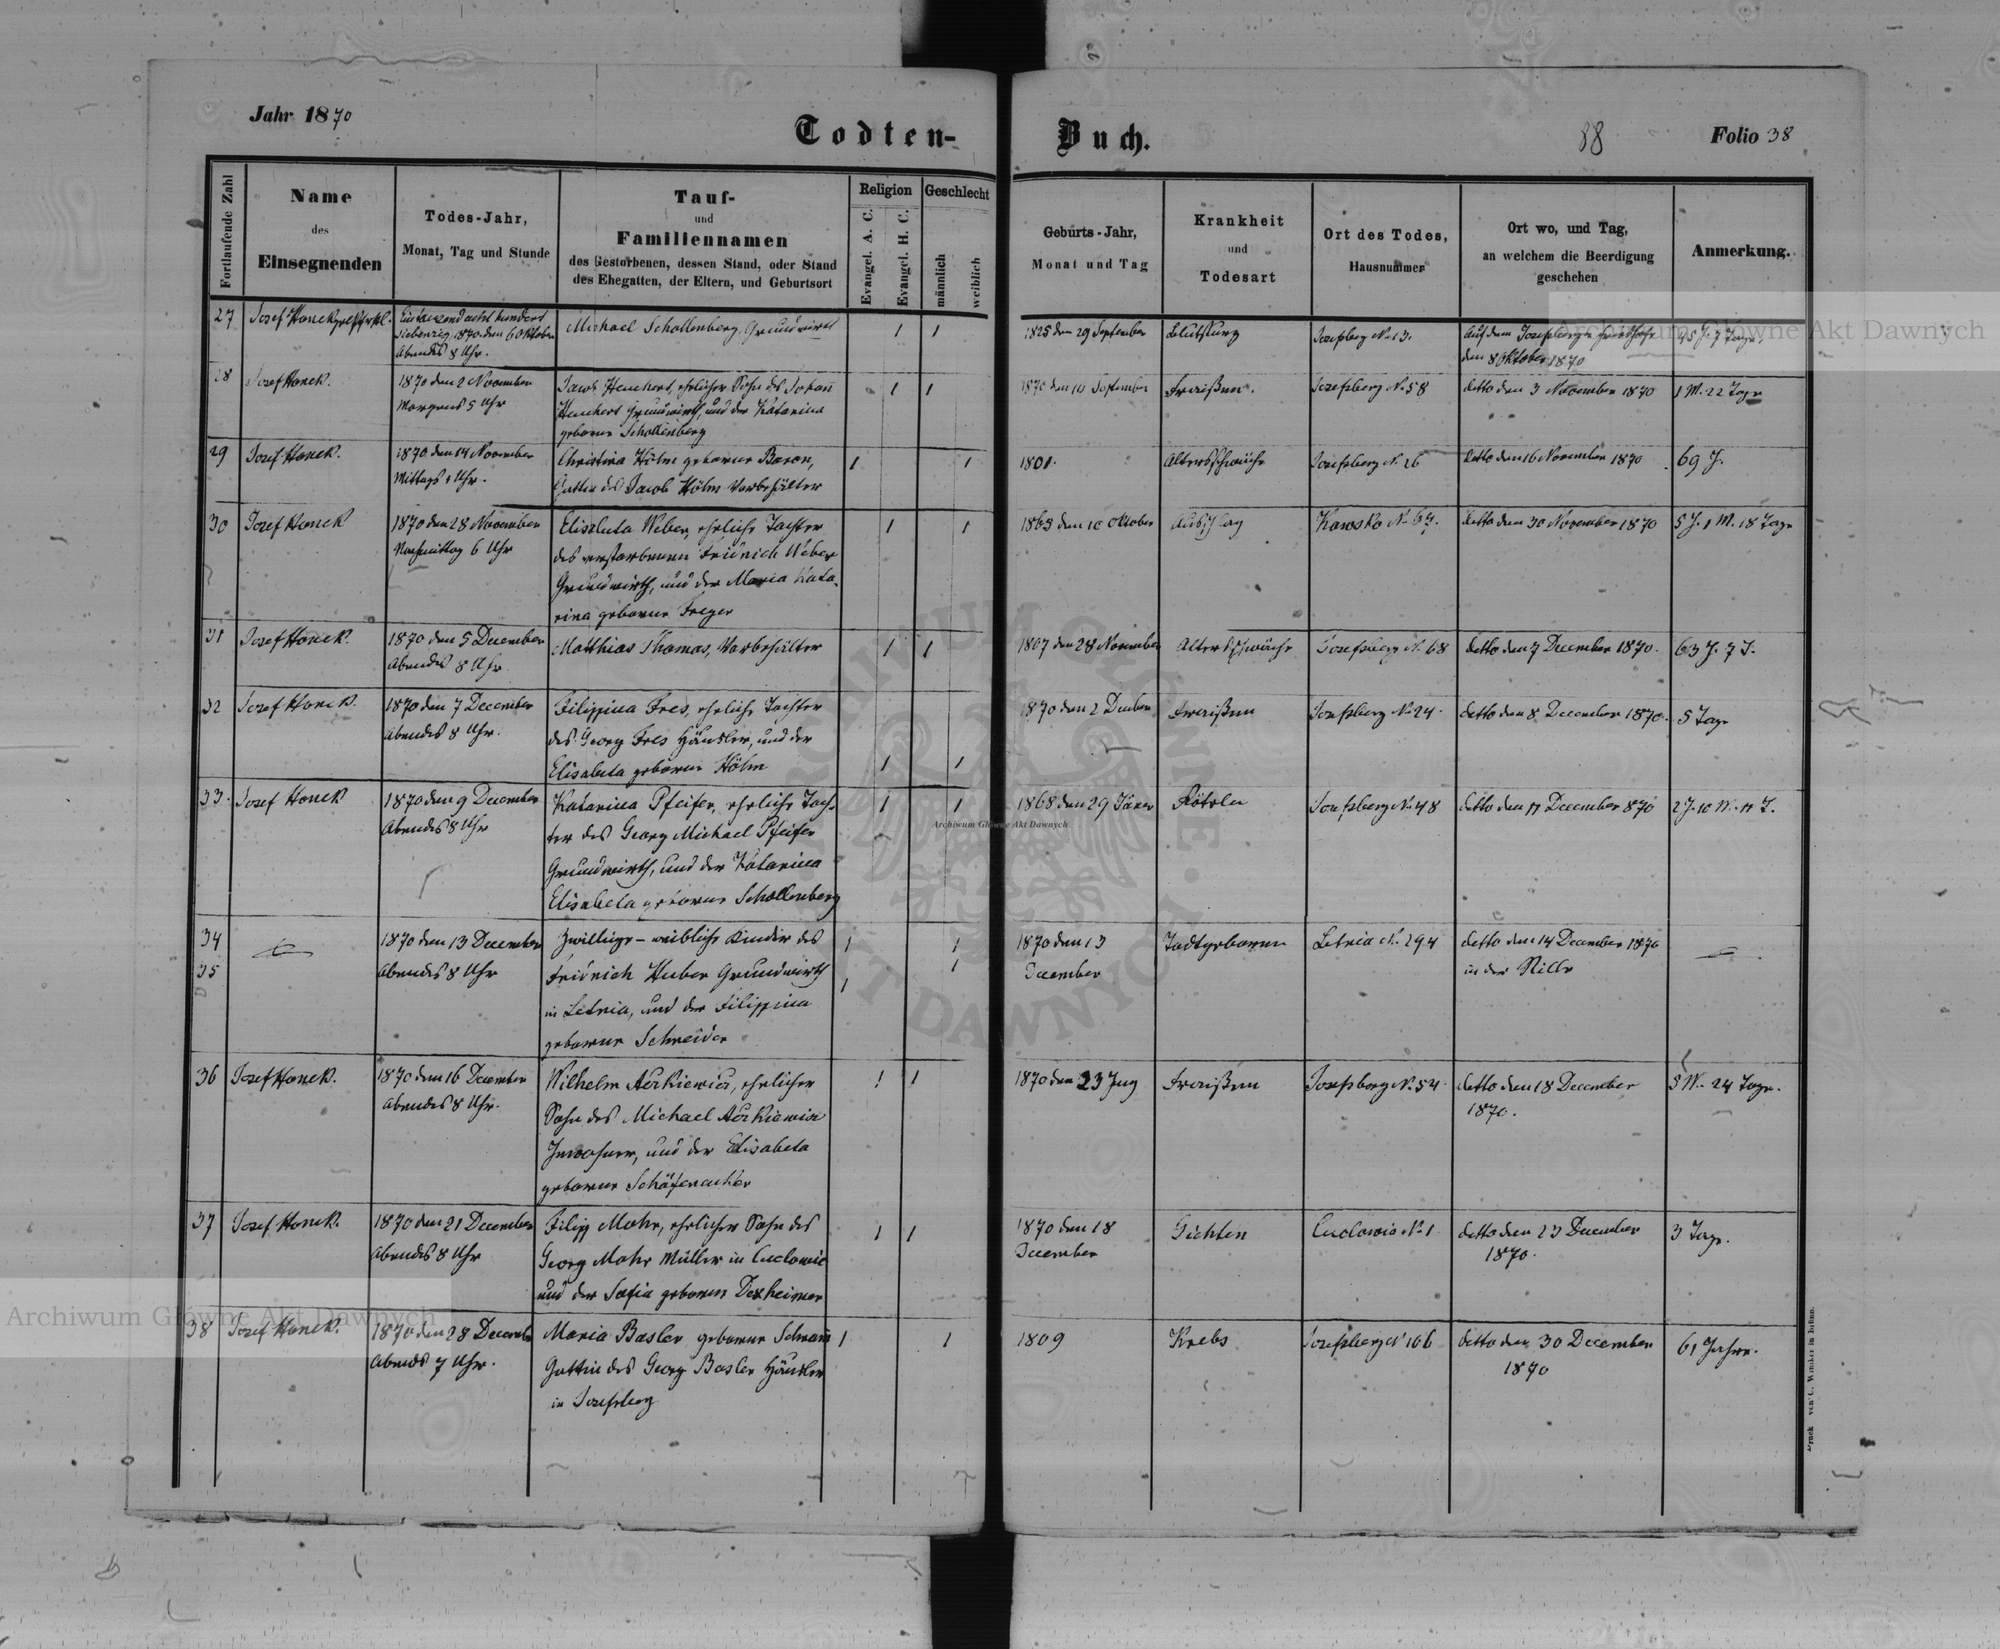 Jahr 1870
Todten-Buch.
88
Folio 38
Fortlaufende Zahl
Name
des
Einsegnenden
Todes-Jahr,
Monat, Tag und Stunde
Tauf-
und
Familiennamen
des Gestorbenen, dessen Stand, oder Stand
des Ehegatten, der Eltern, und Geburtsort
Religion
Evangel. A. C.
Evangel. H. C.
Geschlecht
männlich
weiblich
Geburts-Jahr,
Monat und Tag
Krankheit
und
Todesart
Ort des Todes,
Hausnummer
Ort wo, und Tag,
an welchem die Beerdigung
geschehen
Anmerkung.
27
Josef Honek
Eintausend acht hundert
siebenzig 1870 den 6 Oktober
Abends 8 Uhr.
Michael Schollenberg, Grundwirth
1825 den 29 September
Josefsberg No 13.
auf dem Josefsberger Friedhofe
den 8 Oktober 1870
45 J. 7 Tage.
28
Josef Honek.
1870 den 2 November
Morgens 5 Uhr
Jacob Henchert, ehelicher Sohn des Johann
Henchert Grundwirth, und der Katarina
geborne Schollenberg
1870 den 10 September
Fraißen.
Josefsberg No 58
detto den 3 November 1870
1 M. 22 Tage
29
Josef Honek.
1870 den 14 November
Mittags 1 Uhr.
Christina Hölm geborne Baron,
Gattin des Jacob Hölm Vorbehälter
1801.
Altersschwäche
Josefsberg No 26
detto den 16 November 1870
69 J.
30
Josef Honek
1870 den 28 November
Nachmittag 6 Uhr
Elisabeta Weber, eheliche Tochter
des verstorbenen Fridrich Weber
Grundwirth, und der Maria Kata-
rina geborne Freger
1865 den 10 Oktober
Ausschlag
detto den 30 November 1870
5 J. 1 M. 18 Tage
31
Josef Honek.
1870 den 5 December
Abends 8 Uhr.
Matthias Thomas, Vorbehälter
1807 den 28 November
Altersschwäche
Josefsberg No 68
detto den 7 December 1870.
63 J. 7 T.
32
Josef Honek.
1870 den 7 December
Abends 8 Uhr.
Filippina Fres, eheliche Tochter
des Georg Fres Häusler, und der
Elisabeta geborne Hölm
1870 den 2 December
Fraißen
Josefsberg No 24.
detto den 8 December 1870.
5 Tage
33.
Josef Honek
1870 den 9 December
Abends 8 Uhr
Katarina Pfeifer, eheliche Toch-
ter des Georg Michael Pfeifer
Grundwirth, und der Katarina
Elisabeta geborne Schollenberg
1868 den 29 Jäner
Rötelen
Josefsberg No 48
detto den 11 December 1870
2 J. 10 M. 11 T.
34
35
1870 den 13 December
Abends 8 Uhr
Zwillinge - weibliche Kinder des
Fridrich Huber Grundwirth
in Letnia, und der Filippina
geborne Schneider
1870 den 13
December
Todtgeboren
Letnia No 294
detto den 14 December 1870
in der Stille
36
Josef Honek.
1870 den 16 December
Abends 8 Uhr.
Wilhelm, ehelicher
Sohn des Michael
Inwohner, und der Elisabeta
geborne
1870 den 23
Fraißen
Josefsberg No 54.
detto den 18 December
1870.
5 M. 24 Tage.
37
Josef Honek.
1870 den 21 December
Abends 8 Uhr
Filipp Mohr, ehelicher Sohn des
Georg Mohr Müller in
und der Sofia geboren Dexheimer
1870 den 18
December
Gichten
No 1
detto den 23 December
1870.
3 Tage.
38
Josef Honek.
1870 den 28 December
Abends 7 Uhr.
Maria Basler geborne Schram
Gattin des Georg Basler Häusler
in Josefsberg
1809
Krebs
Josefsberg No 106
detto den 30 December
1870
61 Jahre.
Archiwum Główne Akt Dawnych
Archiwum Główne Akt Dawnych
Archiwum Główne Akt Dawnych
ARCHIWUM GŁÓWNE AKT DAWNYCH